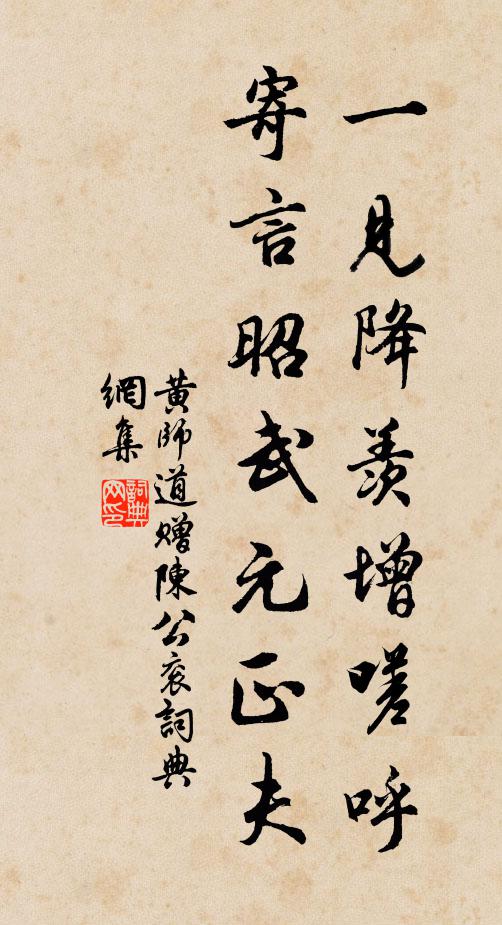 一見降羨增嗟呼
寄言昭武元正夫
黃師道贈陳公袞詞典
網集
詞典
网印